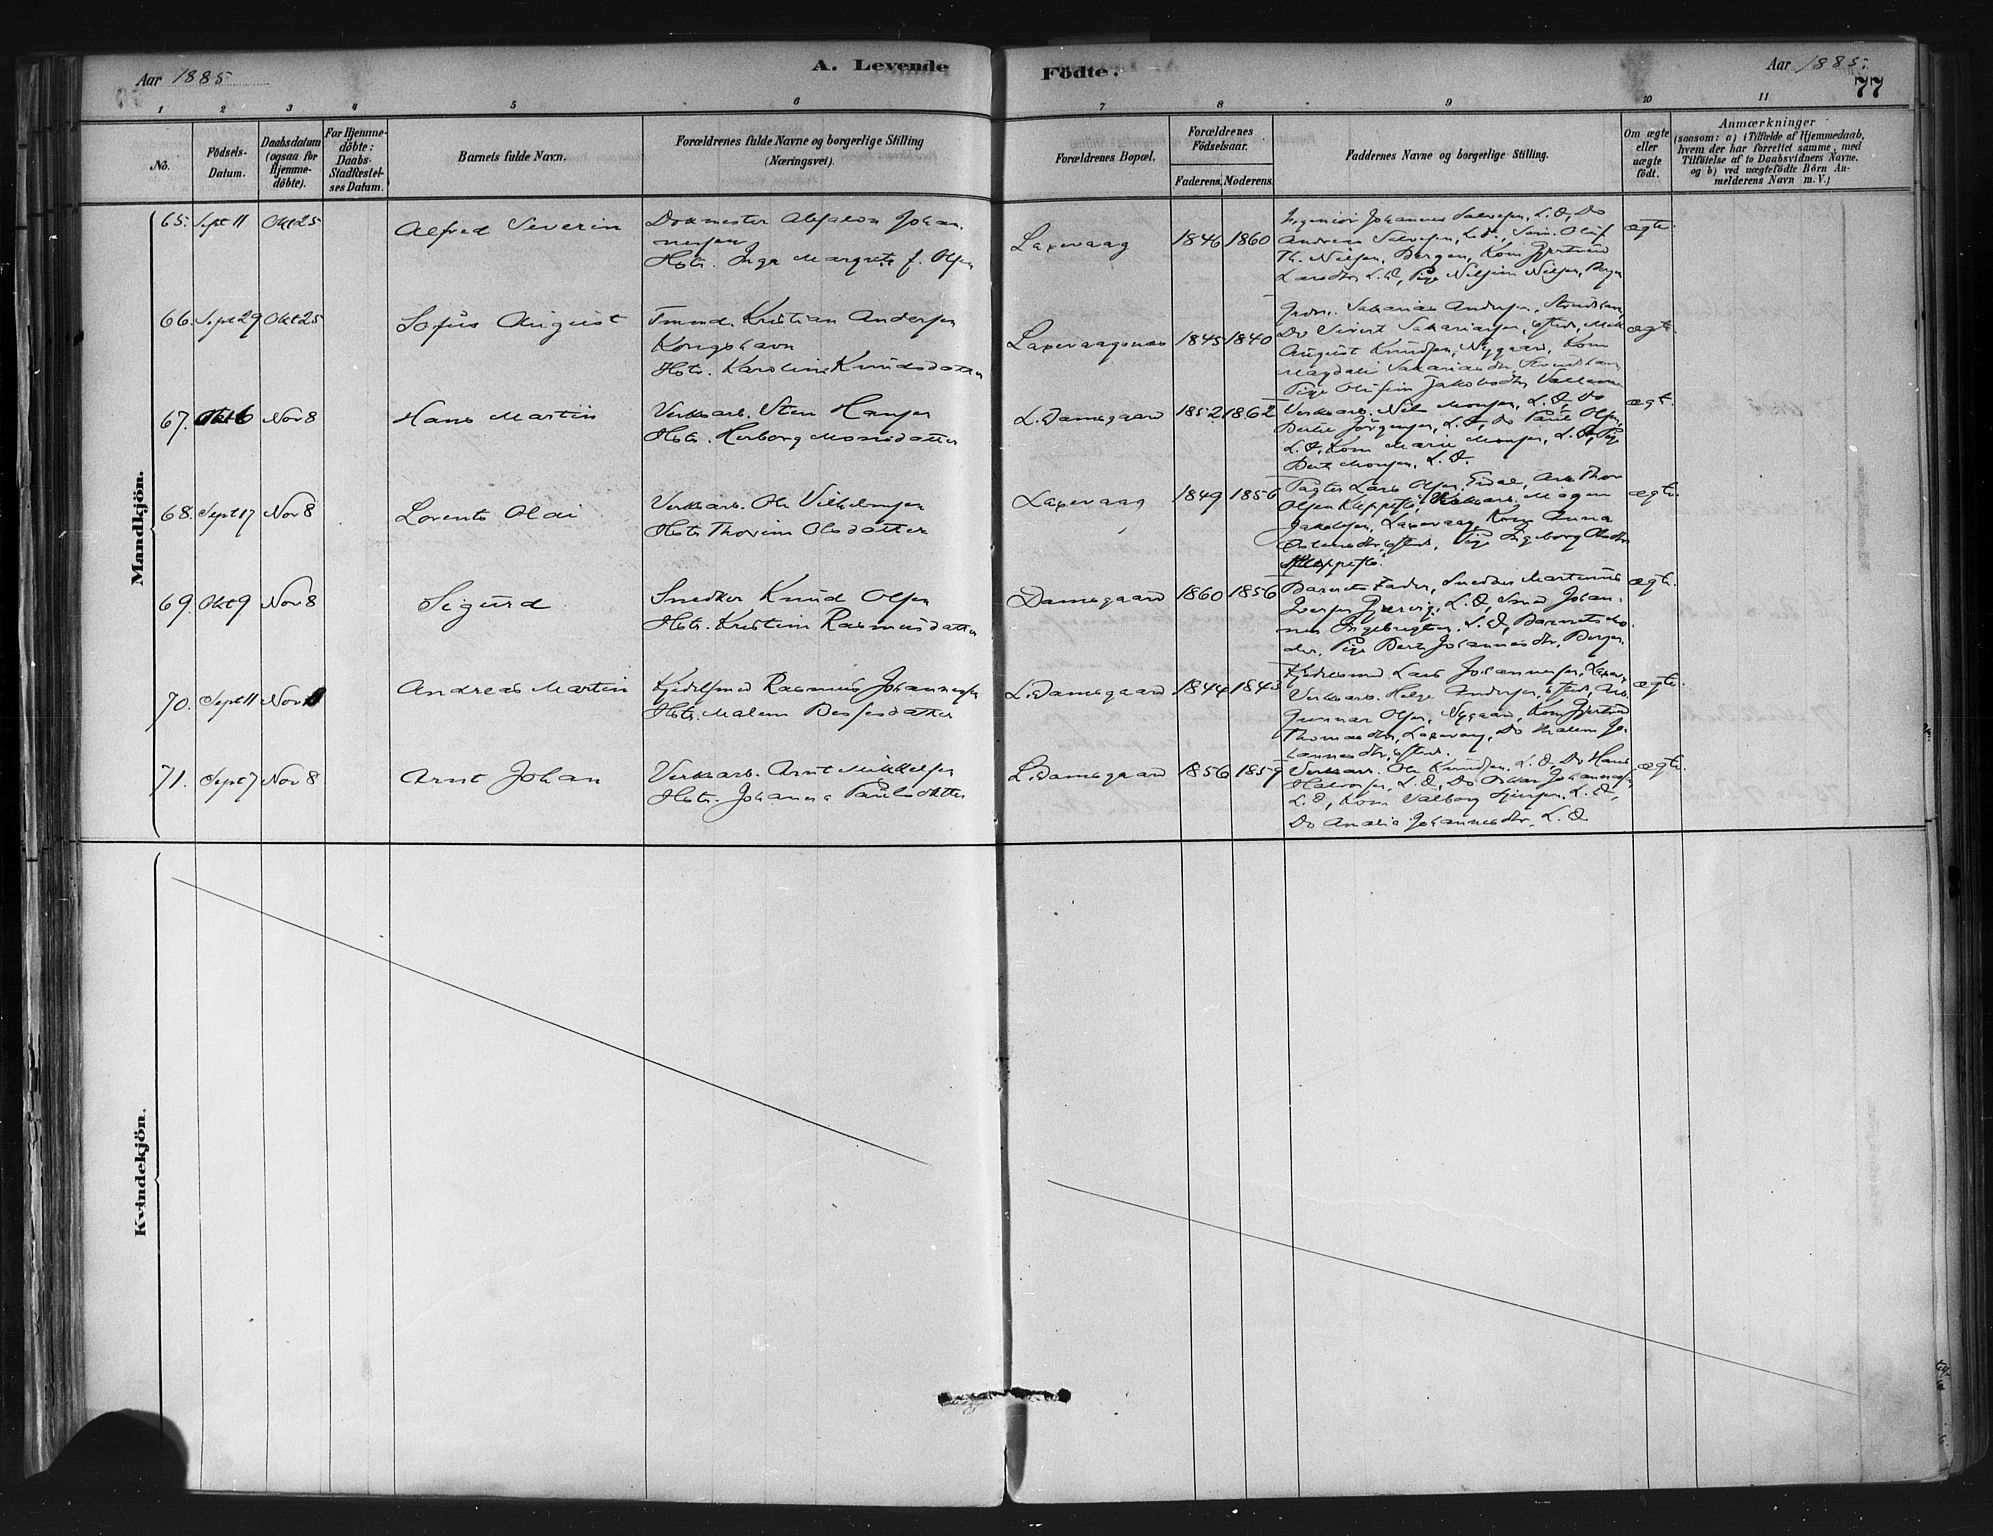 Aar 1885
A. Levende
Födte.
Aar 1885.
77
1 2 3 4 5 6 7 8 9 10 11
No.
Födsels-
Datum.
Daabsdatum
(ogsaa for
Hjemme-
döbte).
For Hjemme-
döbte:
Daabs-
Stadfæstel-
ses Datum.
Barnets fulde Navn.
Forældrenes fulde Navne og borgerlige Stilling
(Næringsvei).
Forældrenes Bopæl.
Forældrenes
Födselsaar.
Faderens. Moderens.
Faddernes Navne og borgerlige Stilling.
Om ægte
eller
uægte
födt.
Anmærkninger
(saasom: a) i Tilfælde af Hjemmedaab,
hvem der har forrettet samme, med
Tilföielse af to Daabsvidners Navne.
og b) ved uægtefödte Börn An-
melderens Navn m. V.)
Mandkjön.
65. Sept 11 Okt 25 Alfred Severin
Dokmester Absalon Johan
nesen
Hstr. Inga Margrete f. Olsen
Laxevaag 1846 1860
Ingeniör Johannes Salvesen, L. D, Do
Andreas Salvesen, L. D., Olüf
Th. Nilsen, Bergen, Kone Gjertrud
Larsdtr L. D, Pige Nilsine Nilsen, Bergen
ægte.
66. Sept 29 Okt 25 Sofus August
Tmmd. Kristian Andersen
Kongshavn
Hstr. Karoline Knudsdatter
Laxevaagsnes 1845 1840
Sakarias Andersen,
Do Sivert Sakariasen,
August Knudsen, Nygaard, Kone
Magdale Sakariasdtr,
Pige Olufine Jakobsdtr,
ægte.
67. Okt 6 Nov 8 Hans Martin
Verksarb. Sten Hansen
Hstr. Herborg Monsdatter
L. Damsgaard 1852 1862
Verksarb. Nils Monsen, L. D, Do
Jörgensen, L. D, Do Paul Olsen,
L. D, Kone Marie Monsen, L. D, Pige
Berte Monsen, L. D.
ægt.
68. Sept 17 Nov 8 Lorents Olai
Verksarb. Ole Vilhelmsen
Hstr. Thorine Olsdatter
Laxevaag 1849 1856
Lars Olsen, Arb. Thor
Olsen Kleppestö, Verksarb. Mogen
Jakobsen, Laxevaag, Kone Anna
Pige Ingeborg Olsdtr
Kleppestö
ægte.
69. Okt 9 Nov 8 Sigurd
Snedker Knud Olsen
Hstr. Kristine Rasmusdatter
Damsgaard 1860 1856
Barnets Fader, Snedker Martinus
Iversen L. D, Smed Johan-
nes Ingebrigtsen, L. D, Barnets Mo-
der, Pige Berte Johannesdtr, Bergen
ægte.
70. Sept 11 Nov 8 Andreas Martin
Kjedelsmed Rasmus Johannessen
Hstr. Malene Bessesdatter
L. Damsgaard 1844 1843
Kjedelsmed Lars Johannessen, Laxev,
Verksarb. Helge Andersen, Arb.
Gunnar Olsen, Nygaard, Kone Gjertrud
Thomasdtr, Laxevaag, Do Malene Jo-
hannesdtr,
ægte.
71. Sept 7 Nov 8 Arnt Johan
Verksarb. Arnt Mikkelsen
Hstr. Johanna Paulsdatter
L. Damsgaard 1856 1859
Verksarb. Ole Knudsen, L. D, Do Hans
Halvorsen, L. D, Do Oskar Johannessen,
L. D, Kone Valborg L. D,
Do Amalia Johannesdtr, L. D
ægte.
Kvindekjön.